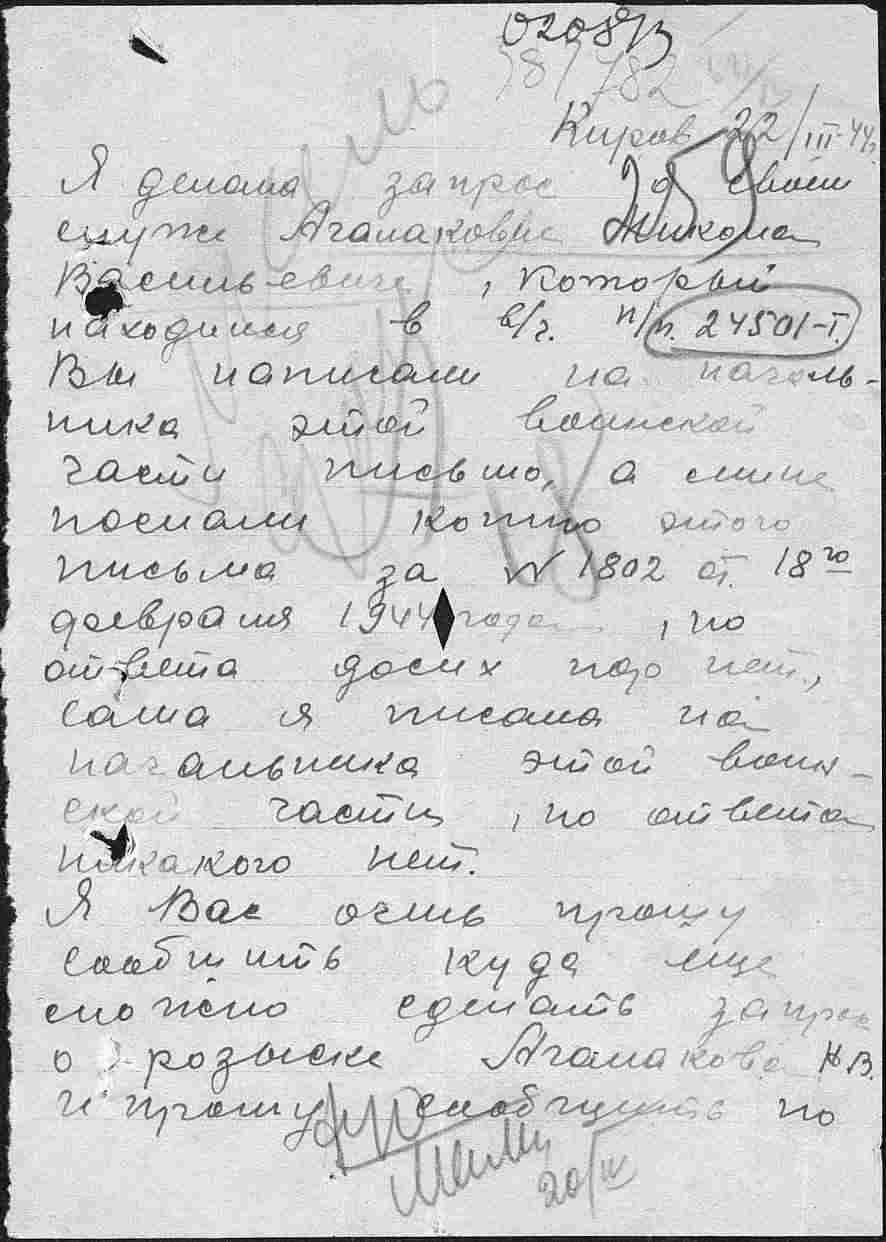 0208/13
78/782
Киров 22/III-44г.
Я делала запрос о своём
муже Агалакове Никола
Васильевиче, который
находится в в/ч. п/п. 24501-I.
Вы написали на началь-
ника этой воинской
части письмо, а мне
послали копию этого
письма за N 1802 от 18го
февраля 1944 года, но
ответа досих пор нет,
сама я писала на
начальника этой воин-
ской части, но ответа
никакого нет.
Я Вас очень прошу
сообщить куда еще
можно сделать запрос
о розыске Агалакова Н.В.
и прошу сообщить по
20/IV